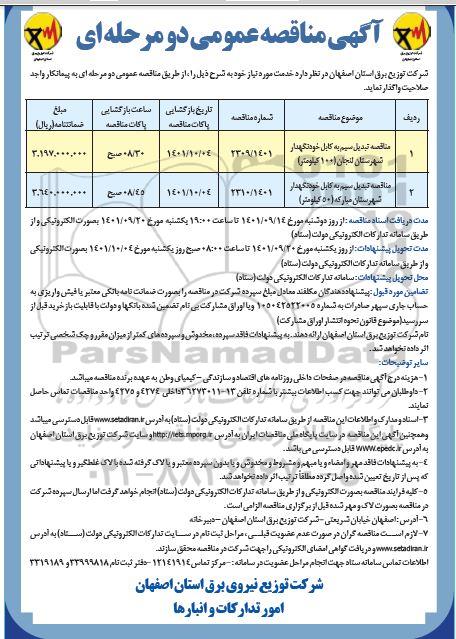 آگهی مناقصه عمومی دو مرحله ای
شرکت توزیع برق استان اصفهان در نظر دارد خدمت مورد نیاز خود به شرح ذیل را ، از طریق مناقصه عمومی دو مرحله ای به پیمانکار واجد
صلاحیت واگذار نماید.
ردیف موضوع مناقصه شماره مناقصه تاریخ بازگشایی پاکات مناقصه ساعت بازگشایی پاکات مناقصه مبلغ ضمانتنامه(ریال)
۱ مناقصه تبدیل سیم به کابل خودنگهدار شهرستان لنجان (۱۰۰ کیلومتر) ۲۳۰۹/۱۴۰۱ ۱۴۰۱/۱۰/۰۴ ۰۸/۳۰ صبح ۳.۱۹۷.۰۰۰.۰۰۰
۲ مناقصه تبدیل سیم به کابل خودنگهدار شهرستان مبارکه (۵۰ کیلومتر) ۲۳۱۰/۱۴۰۱ ۱۴۰۱/۱۰/۰۴ ۰۸/۴۵ صبح ۳.۶۴۰.۰۰۰.۰۰۰
مدت دریافت اسناد مناقصه : از روز دوشنبه مورخ ۱۴۰۱/۰۹/۱۴ تا ساعت ۱۹:۰۰ یکشنبه مورخ ۱۴۰۱/۰۹/۲۰ بصورت الکترونیکی و از
طریق سامانه تدارکات الکترونیکی دولت (ستاد)
مدت تحویل پیشنهادات: از روز یکشنبه مورخ ۱۴۰۱/۰۹/۲۰ تا ساعت ۰۸:۰۰ صبح روز یکشنبه مورخ ۱۴۰۱/۱۰/۰۴ بصورت الکترونیکی
و از طریق سامانه تدارکات الکترونیکی دولت (ستاد)
محل تحویل پیشنهادات: سامانه تدارکات الکترونیکی دولت (ستاد)
تضامین مورد قبول: پیشنهاددهندگان مکلفند معادل مبلغ سپرده شرکت در مناقصه را بصورت ضمانت نامه بانکی معتبر یا فیش واریزی به
حساب جاری سپهر صادرات به شماره و یا اوراق مشارکت بی نام تضمین شده بانکها و دولت با قابلیت باز خرید قبل از
سررسید(موضوع قانون نحوه انتشار اوراق مشارکت)
نام شرکت توزیع برق استان اصفهان ارائه دهند. به پیشنهادات فاقد سپرده، مخدوش و سپرده های کمتر از میزان مقرر و چک شخصی ترتیب
اثر داده نخواهد شد.
سایر توضیحات:
۱- هزینه درج آگهی مناقصه در صفحات داخلی روزنامه های اقتصاد و سازندگی - کیمیای وطن به عهده برنده مناقصه میباشد.
۲- داوطلبان می توانند جهت کسب اطلاعات بیشتر با شماره تلفن ۱۳-۳۶۲۷۳۰۱۱ داخلی ۴۲۷۴ و ۴۲۷۵ واحد مناقصات تماس حاصل
نمایند.
۳- اسناد و مدارک و اطلاعات این مناقصه از طریق سامانه تدارکات الکترونیکی دولت (ستاد) به آدرس www.setadiran.ir قابل دسترسی میباشد
وهمچنین آگهی این مناقصه در سایت پایگاه ملی مناقصات ایران به آدرس http://iets.mporg.ir و سایت شرکت توزیع برق استان اصفهان
به آدرس www.epedc.ir قابل دسترسی می باشد.
۴- به پیشنهادات فاقد مهر و امضاء و یا مبهم و مشروط و مخدوش و یا بدون سپرده معتبر و یا لاک گرفته شده یا لاک غلطگیر و یا پیشنهاداتی
که پس از تاریخ تعیین شده واصل گردد مطلقاً ترتیب اثر داده نخواهد شد.
۵- کلیه فرایند مناقصه بصورت الکترونیکی و از طریق سامانه تدارکات الکترونیکی دولت (ستاد) انجام خواهد گرفت اما ارسال سپرده شرکت
در مناقصه بصورت لاک و مهر شده قبل از برگزاری مناقصه الزامی است.
۶- آدرس: اصفهان خیابان شریعتی - شرکت توزیع برق استان اصفهان - دبیرخانه
۷- لازم است مناقصه گران در صورت عدم عضویت قبلی ، مراحل ثبت نام در سایت تدارکات الکترونیکی دولت (ستاد) به آدرس
www.setadiran.ir و دریافت گواهی امضای الکترونیکی را جهت شرکت در مناقصه محقق سازند.
اطلاعات تماس سامانه ستاد جهت انجام مراحل عضویت در سامانه : - مرکز تماس - دفتر ثبت نام
شرکت توزیع نیروی برق استان اصفهان
امور تدارکات و انبارها